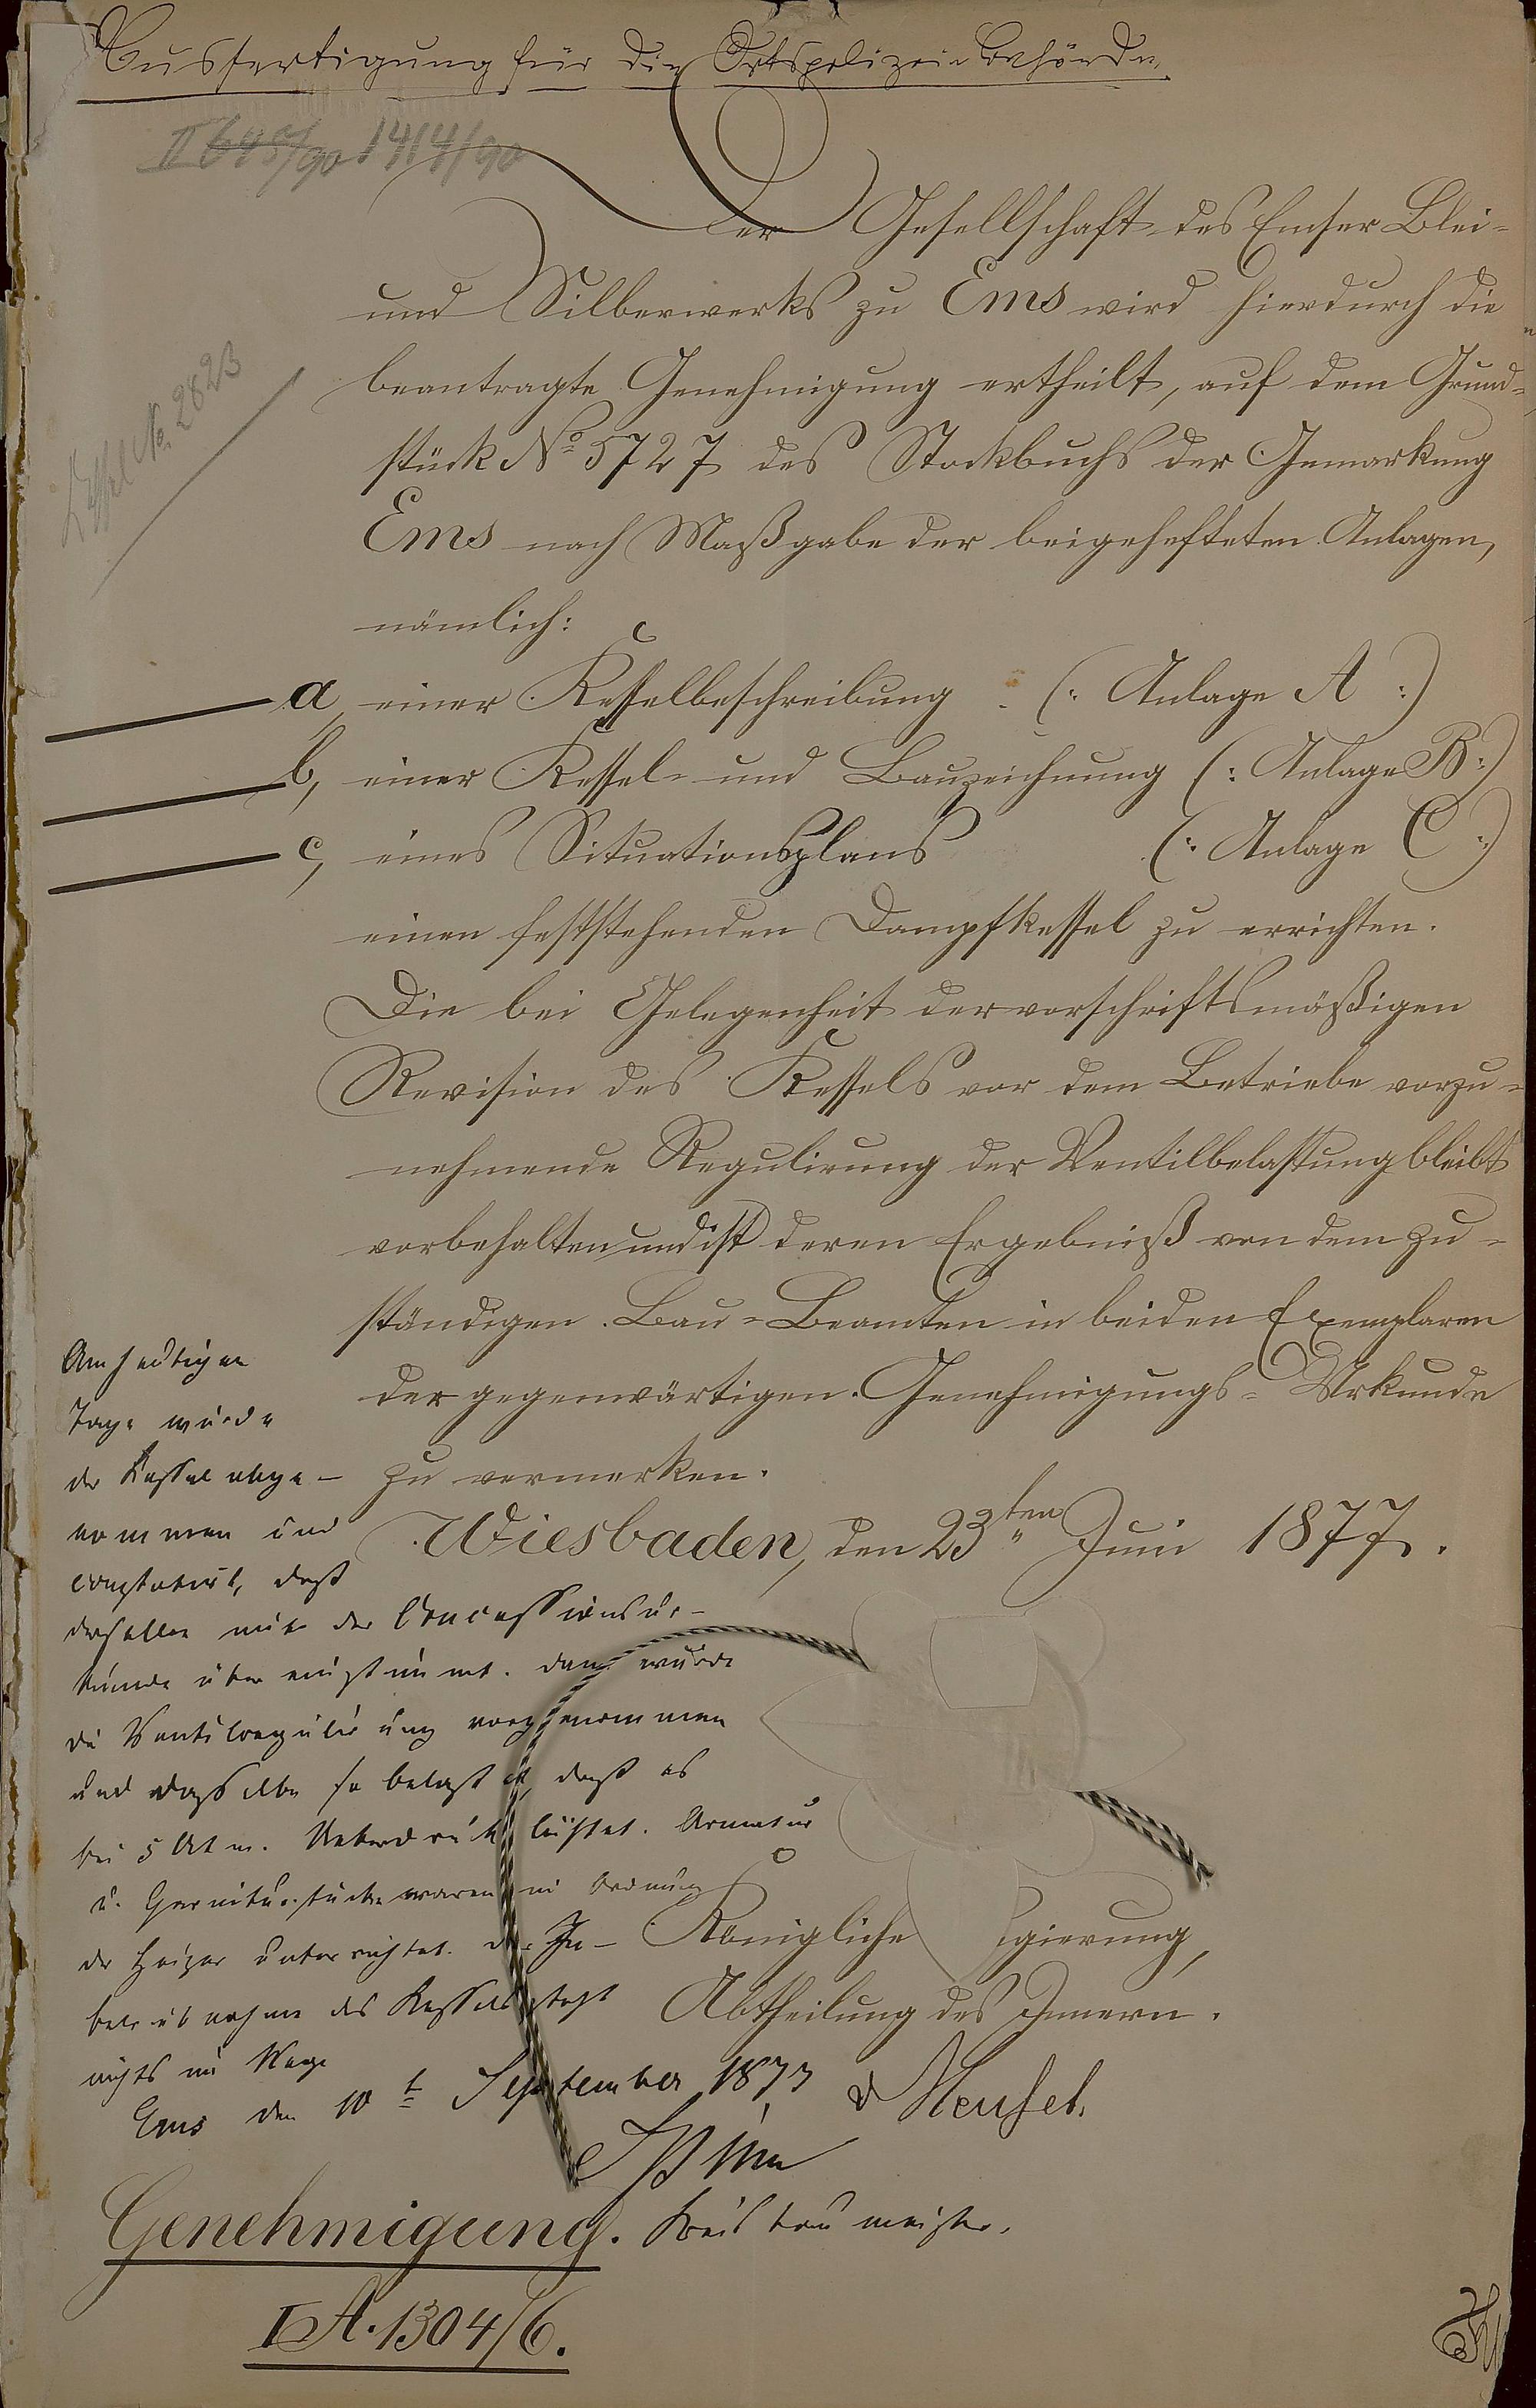 Ausfertigung für die Ortspolizei Behörde.
II 645/90 1414/90
Der Gesellschaft des Emser Blei-
und Silberwerks zu Ems wird hierdurch die
beantragte Genehmigung ertheilt, auf dem Grund-
stück No 5727 des Stockbuchs der Gemarkung
Ems nach Maßgabe der beigehefteten Anlagen,
nämlich:
a, einer Kesselbeschreibung (: Anlage A :)
b, einer Kessel- und Bauzeichnung (: Anlage B :)
c, eines Situationsplans (: Anlage C :)
einen feststehenden Dampfkessel zu errichten.
Die bei Gelegenheit der vorschriftsmäßigen
Revision des Kessels vor dem Betriebe vorzu-
nehmende Regulirung der Ventilbelastung bleibt
vorbehalten und ist deren Ergebniß von dem zu-
ständigen Bau-Beamten in beiden Exemplaren
der gegenwärtigen Genehmigungs-Urkunde
zu vermerken.
Wiesbaden, den 23ten Juni 1877.
Königliche Regierung,
Abtheilung des Innern.
Meusel.
Am heutigen
Tage wurde
der Kessel abge-
nommen und
constatirt, daß
derselbe mit der Concessionsur-
kunde übereinstimmt. Dann wurde
die Ventilregulirung vorgenommen
und dasselbe so belastet, daß es
bei 5 Atm. Ueberdruck lüftet. Armatur
u. Garniturstücke waren in Ordnung
der Heizer unterrichtet. Der In-
betriebnahme des Kessels steht
nichts im Wege
Ems den 10t September 1877
Kreisbaumeister.
Genehmigung.
I A. 1304/6.